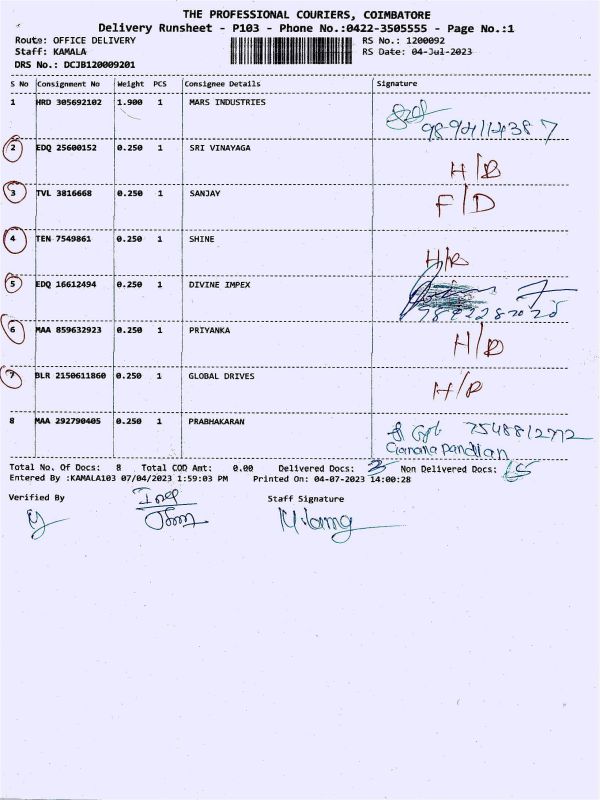 THE PROFESSIONAL COURIERS, COIMBATORE
Delivery Runsheet - P103 - Phone No.:0422-3505555 - Page No.:1
Route: OFFICE DELIVERY RS No.: 1200092
Staff: KAMALA RS Date: 04-Jul-2023
DRS No.: DCJB120009201
S No Consignment No Weight PCS Consignee Details Signature
1 HRD 305692102 1.900 1 MARS INDUSTRIES
2 EDQ 25600152 0.250 1 SRI VINAYAGA
H/B
3 TVL 3816668 0.250 1 SANJAY F/D
4 TEN 7549861 0.250 1 SHINE
5 EDQ 16612494 0.250 1 DIVINE IMPEX
6 MAA 859632923 0.250 1 PRIYANKA
H/B
7 BLR 2150611860 0.250 1 GLOBAL DRIVES
8 MAA 292790405 0.250 1 PRABHAKARAN 7548812772
Total No. Of Docs: 8 Total COD Amt: 0.00 Delivered Docs: Non Delivered Docs:
Entered By :KAMALA103 07/04/2023 1:59:03 PM Printed On: 04-07-2023 14:00:28
Verified By Staff Signature